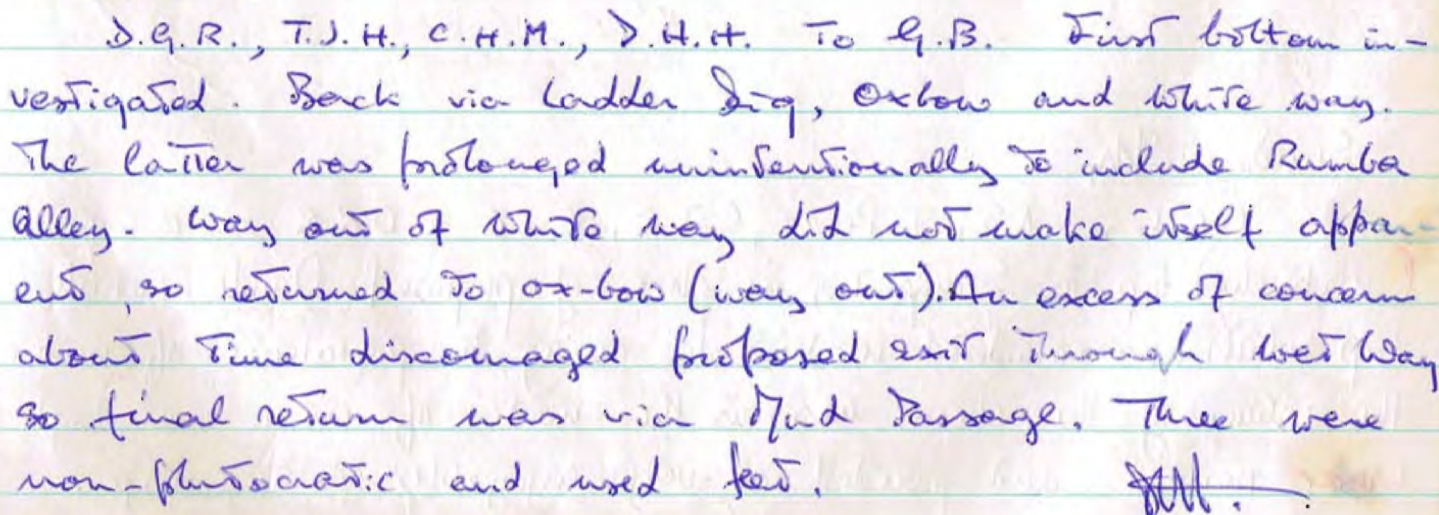 D.G.R., T.J.H., C.H.M., D.H.H. To G.B. First bottom in-
vestigated. Back via Ladder Dig, Oxbow and White way.
The latter was prolonged unintentionally to include Rumba
Alley. Way out of White way did not make itself appar-
ent, so returned to ox-bow (way out). An excess of concern
about time discouraged proposed exit through Wet Way
so final return was via Mud Passage. Three were
non-plutocratic and used feet.